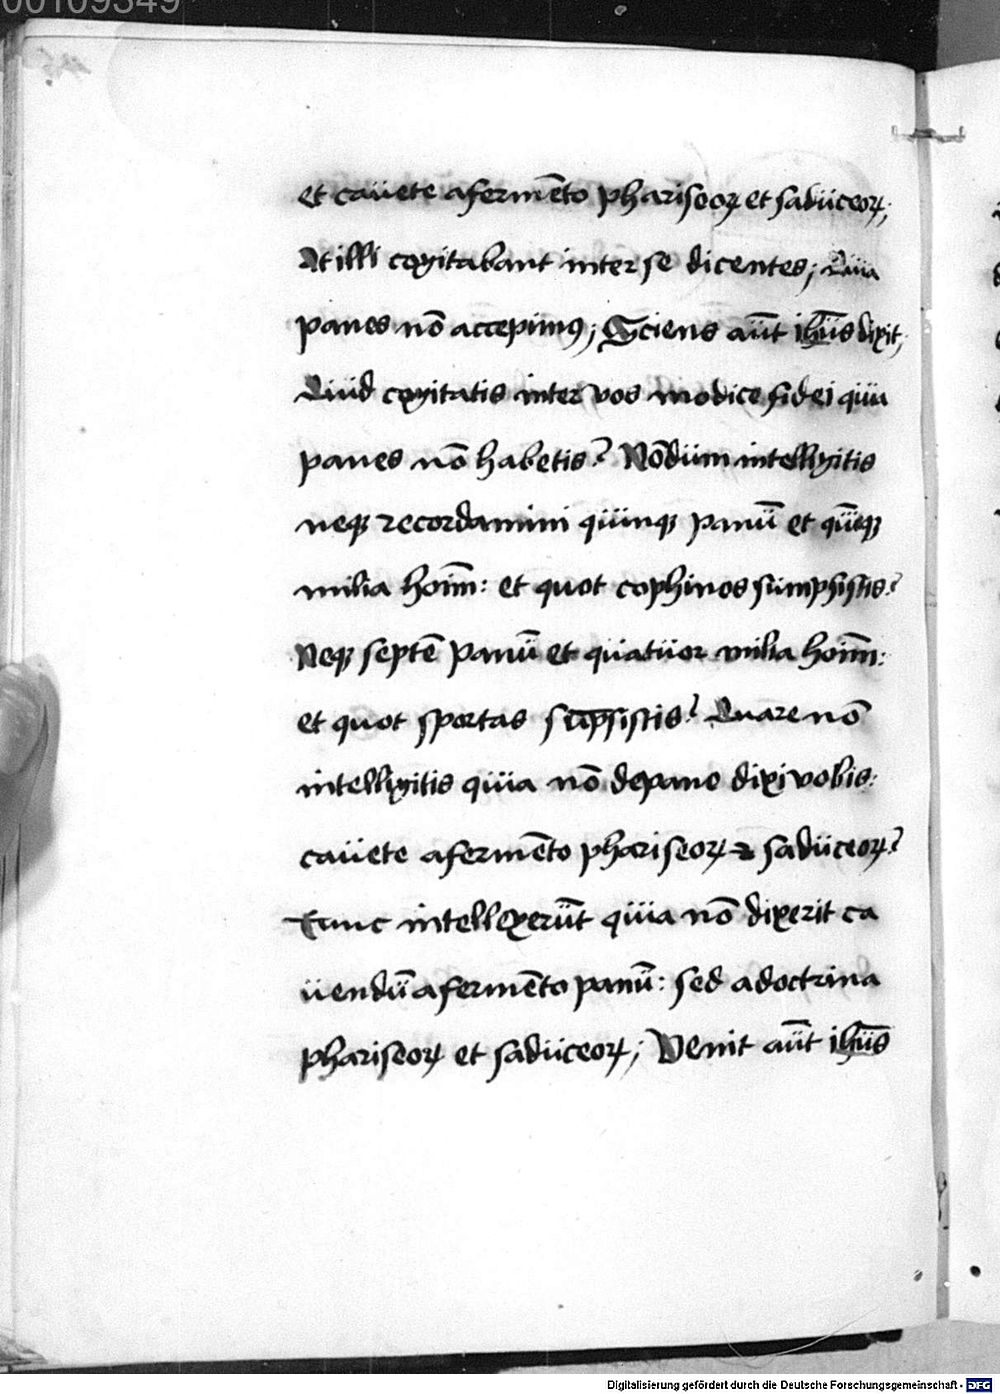 00109349
et caüete a fermēto phariseoꝝ et sadüceoꝝ;
At illi cogitabant inter se dicentes; Quia
panes nō accepimꝰ; Sciens aūt ihūs dixit;
Quid cogitatis inter vos modice fidei qüia
panes nō habetis? Nōdüm intelligitis
neqꝫ recordamini qüinqꝫ panū et qūiqꝫ
milia hoīm: et quot cophinos sümpsistis?
Neqꝫ septē panū et qüatüor milia hoīm:
et quot sportas sūpsistis? Quare nō
intelligitis qüia nō de pane dixi vobis:
caüete a fermēto phariseoꝝ ⁊ sadüceoꝝ?
Tunc intellexerūt qüia nō dixerit ca
üendū a fermēto panū: sed a doctrina
phariseoꝝ et sadüceoꝝ; Venit aūt ihūs
Digitalisierung gefördert durch die Deutsche Forschungsgemeinschaft - DFG